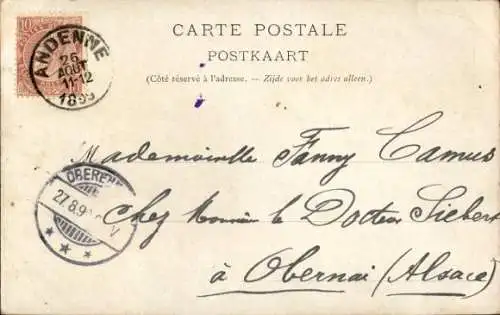 CARTE POSTALE
POSTKAART
(Côté réservé à l'adresse. — Zijde voor het adres alleen.)
10
ANDENNE
26
AOUT
11-12
OBEREH
27.8.9
V
Mademoiselle Fanny Camus
Chez Monsieur le Docteur Siebert
à Obernai (Alsace)